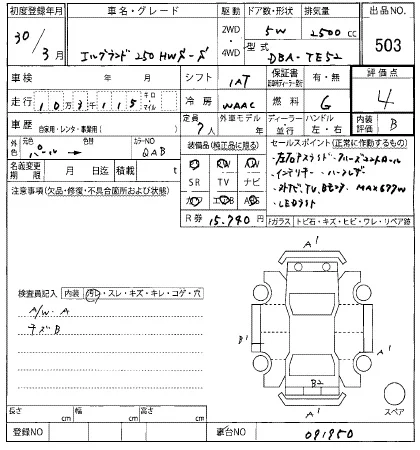 初度登録年月 車名・グレード 駆動 ドア数・形状 排気量 出品NO.
30/3月 エルグランド 250HWS-S 2WD・4WD 5W 2500cc 503
型式 DBA-TE52
車検 年 月 シフト IAT 保証書 有・無 評価点
走行 103千115 キロ マイル 冷房 WAAC 燃料 G 4
車歴 自家用・レンタ・事業用( ) 定員 7人 外車モデル 年 ディーラー 並行 ハンドル 左・右 内装評価 B
外色 元色 パール → カラーNO QAB
名義変更期限 月 日 積載 t
装備品(純正品に限る)
SR TV ナビ
R券 15.740円
セールスポイント(正常に作動するもの)
・左右Pスライド
・インテリキー ・ハーフレザー
MAX677W
・LEDライト
注意事項(欠品・修復・不具合箇所および状態)
Fガラス トビ石・キズ・ヒビ・ワレ・リペア跡
検査員記入 内装 汚レ・スレ・キズ・キレ・コゲ・穴
A/W. A
キズB
A¹
B¹
A¹
B2
A¹
A¹
スペア
長さ cm 幅 cm 高さ cm
登録NO 車台NO 091950